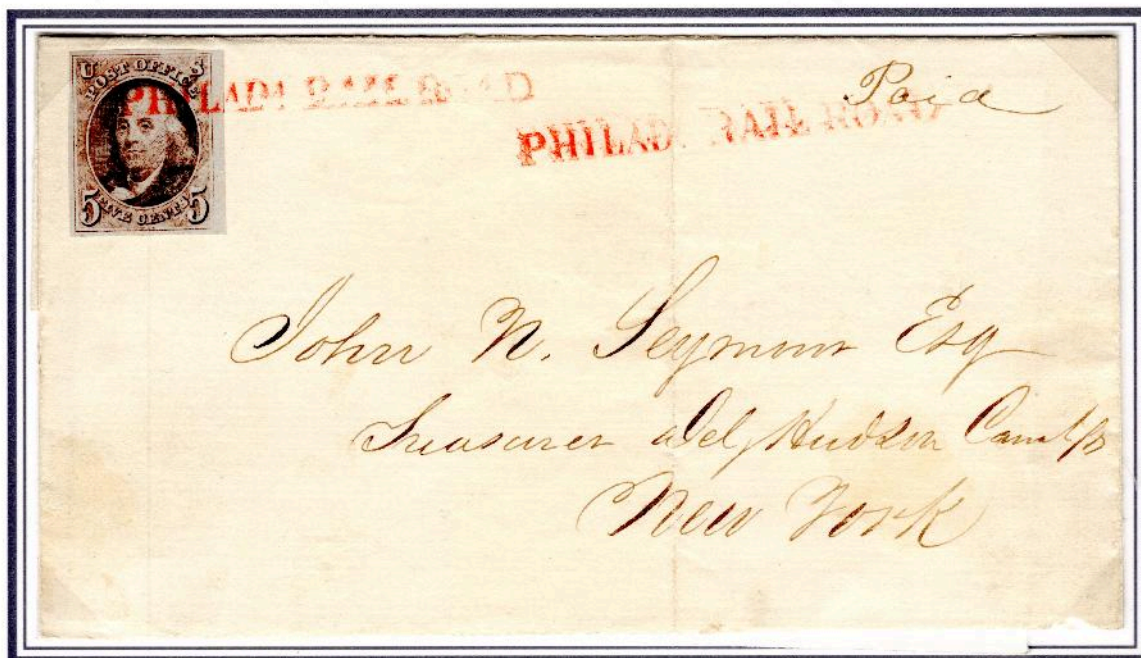 U S
POST OFFICE
FIVE CENTS
5 5
PHILADA RAIL ROAD
PHILADA RAIL ROAD
Paid
John N. Seymour Esq
Treasurer Del, Hudson Canal
New York